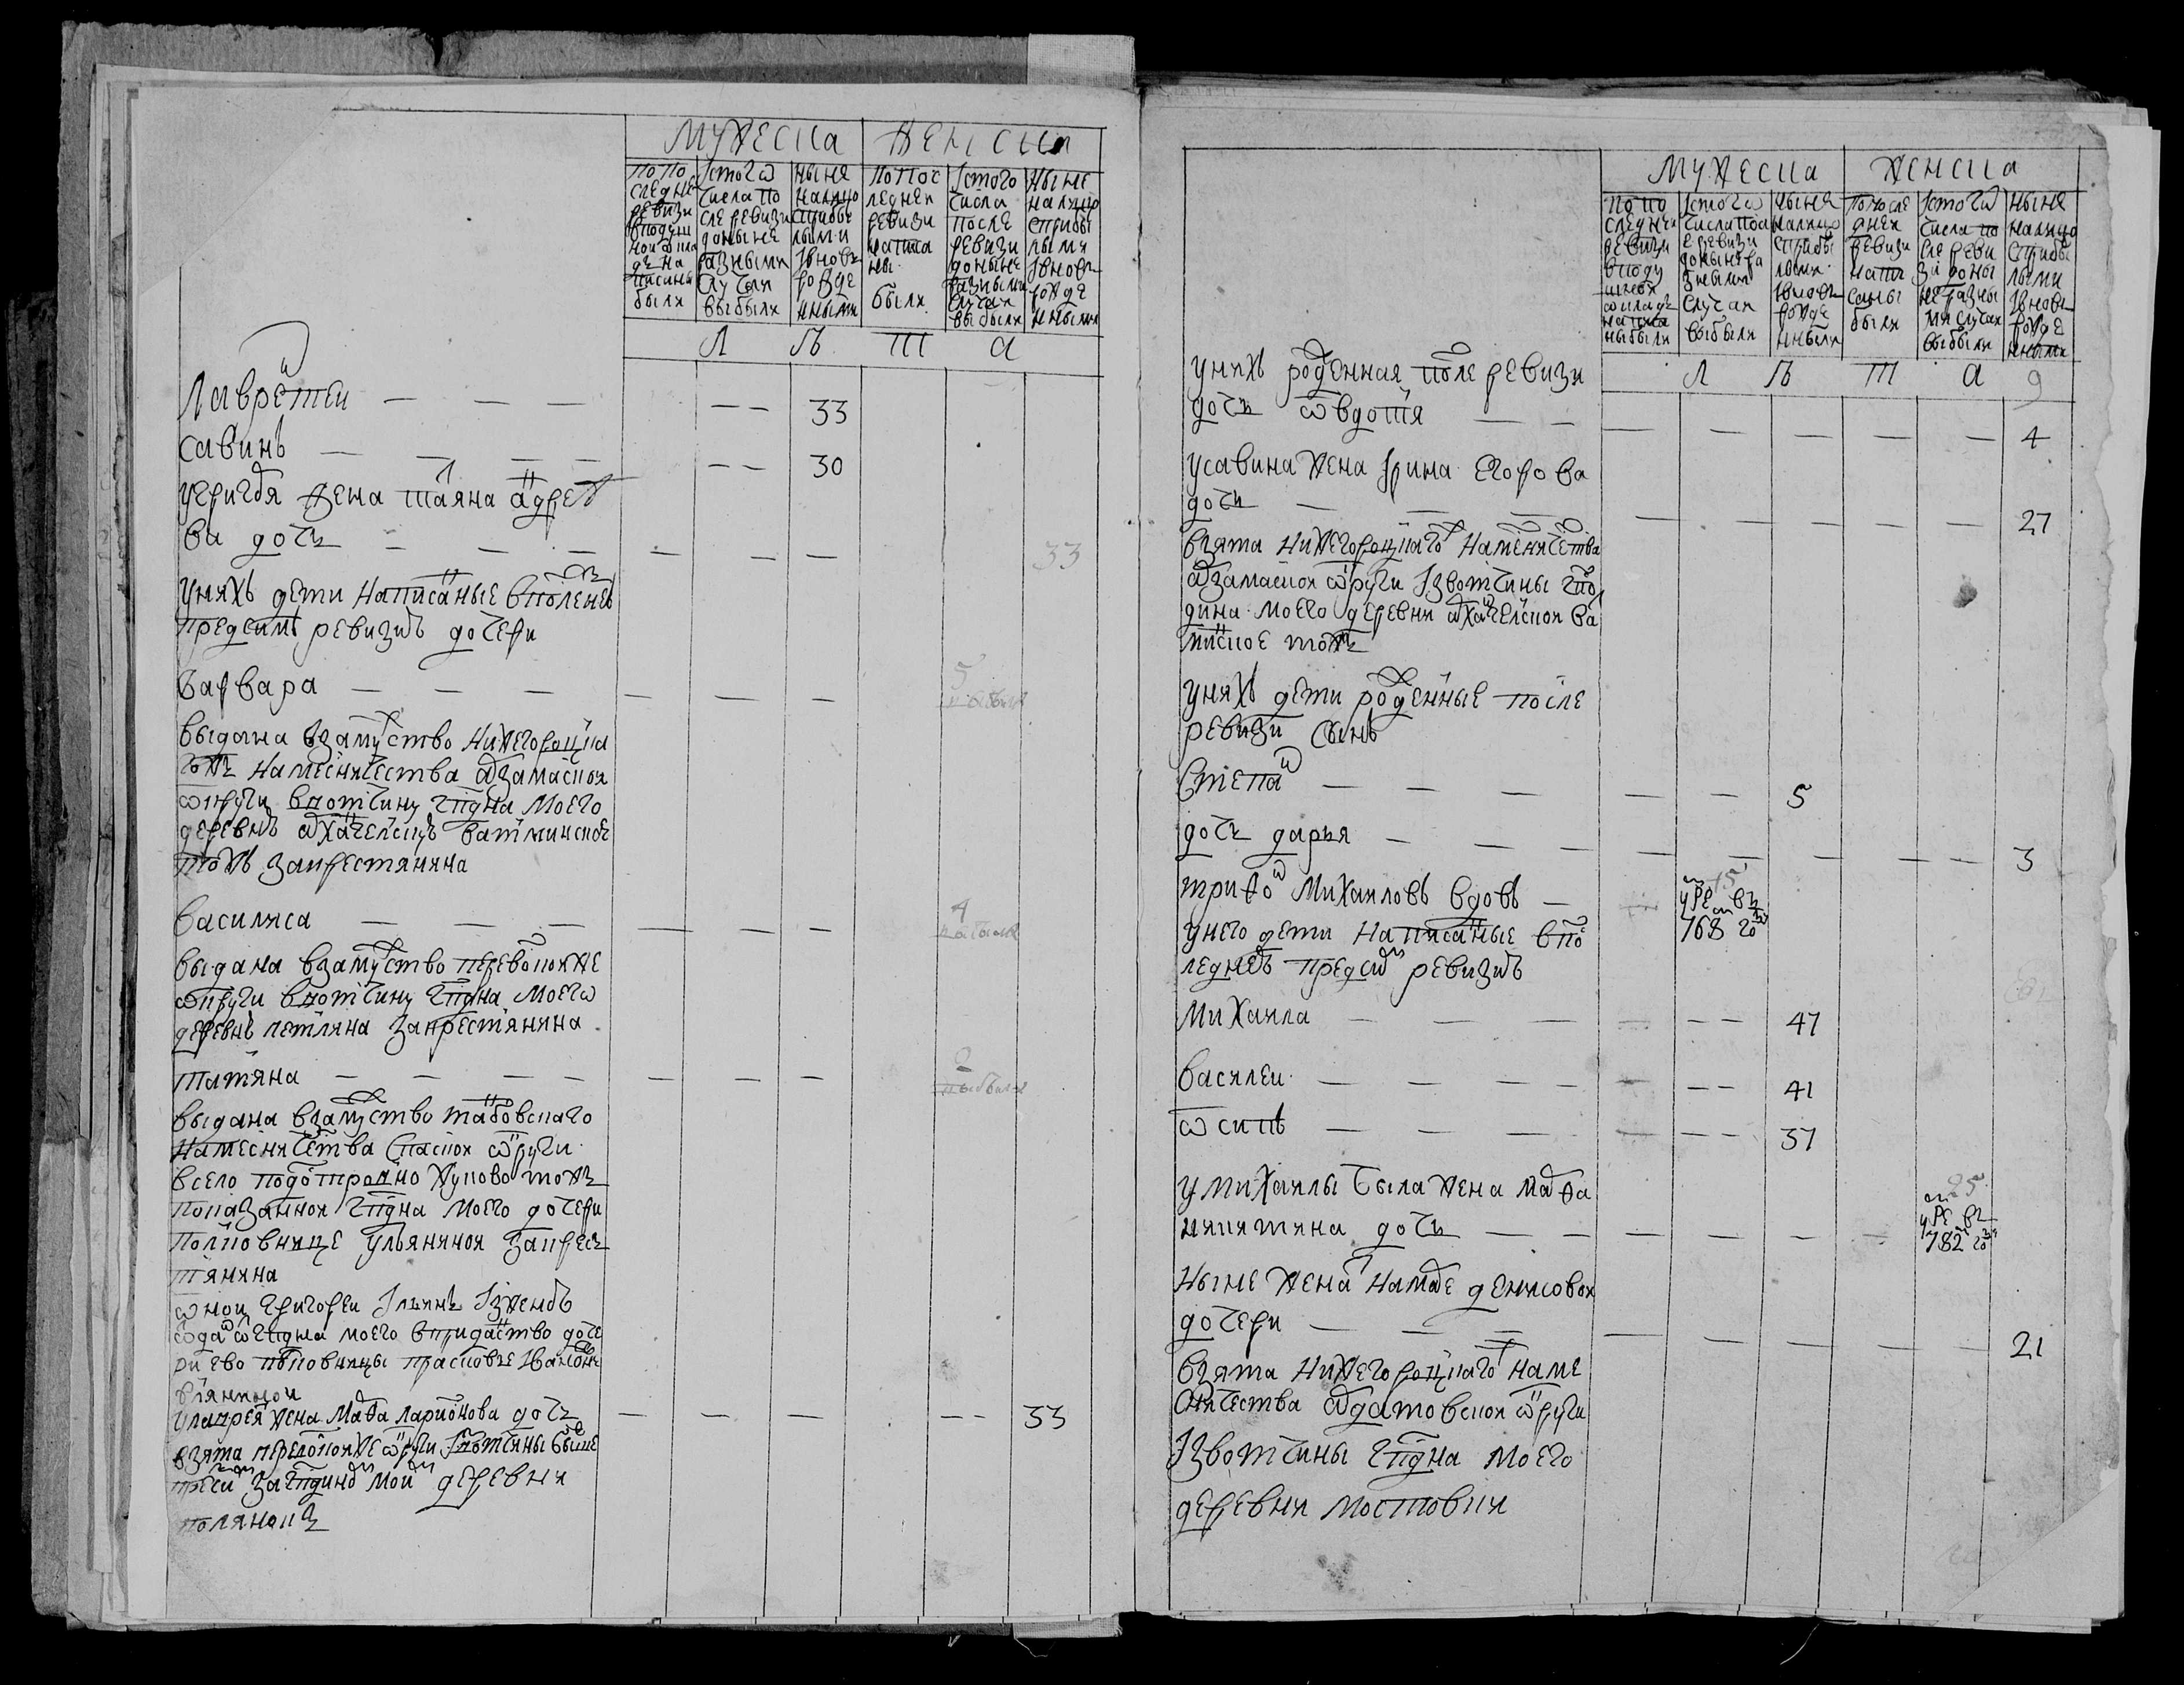 мужеска женска
попо следне ревизи вподуш ной окла де на писаны были
Iстого числа по сле ревизи доныне разными случаи выбыли
ныне налицо сприбы лыми Iвновь рожде нными
попос ледней ревизи написа ны были
Iстого числа после ревизи доныне разными случаи выбыли
ныне налицо сприбы лыми Iвновь рожде нными
лѣта
лаврентеи — — — — — 33
савинъ — — — — — — 30
угригоря жена татяна андреев
ва дочь — — — — — — 33
унихъ дети написаные впоследнеи
предсимъ ревизиѣ дочери
варвара — — — — — — 5
выбыли
выдана взамужство нижегороцка
гожъ намесничества арзамаской
округи вотчину гпдна моего
деревнѣ архангелскую ватминское
тожъ закрестянина
василиса — — — — — — 4
выбыла
выдана взамужство перевозкоиже
округи вотчину гпдна моего
деревнѣ летляна закрестянина
татяна — — — — — — — 2
выбыла
выдана взамужство танбовскаго
намесничества спаской округи
всело подостровно жуково тожъ
показаннои гпдна моего дочери
полковнице ульяниной закрес
тянина
оной григореи Iльинъ Iзженою
одан от гпдна моего вприданство доче
ри ево полковницы прасковье Ивановне
ульяниной
улаврентя жена марфа ларионова дочь — — — — — 33
взята перевозкоиже округи Iвотчины бывше
деревни
полянокъ
мужеска женска
попо следней ревизи вподу шной окладе написа ны были
Iстого числа посл е ревизи доныне ра зными случаи выбыли
ныне налицо сприбы лыми Iвновь рожде нными
попосле дней ревизи напи саны были
Iстого числа по сле реви зи доны не разны ми случаи выбыли
ныне налицо сприбы лыми Iвновь рожде нными
лѣта 9
унихъ рожденная после ревизи
дочь овдотя — — — — — — — 4
усавина жена Iрина егорова
дочь — — — — — — — — 27
взята нижегороцкаго намесничества
арзамаской округи Iзвотчины гспо
дина моего деревни архангелской ва
минское тожъ
унихъ дети рожденные после
ревизи сынъ
степан — — — — — 5
дочь дарья — — — — — — — — 3
трифон михаиловъ вдовъ — — 15 умре въ 768 году
унего дети написаные впос
леднеѣ предсим ревизиѣ
михаила — — — — — — 47
василеи — — — — — — — 41
осипъ — — — — — — 37
умихаилы была жена марфа
никитина дочь — — — — — — — 25 умре въ 782 году
ныне жена намарфе денисовои
дочери — — — — — — — — 21
взята нижегороцкаго наме
сничества ардатовскои округи
Iзвотчины гпдна моего
деревни мостовки